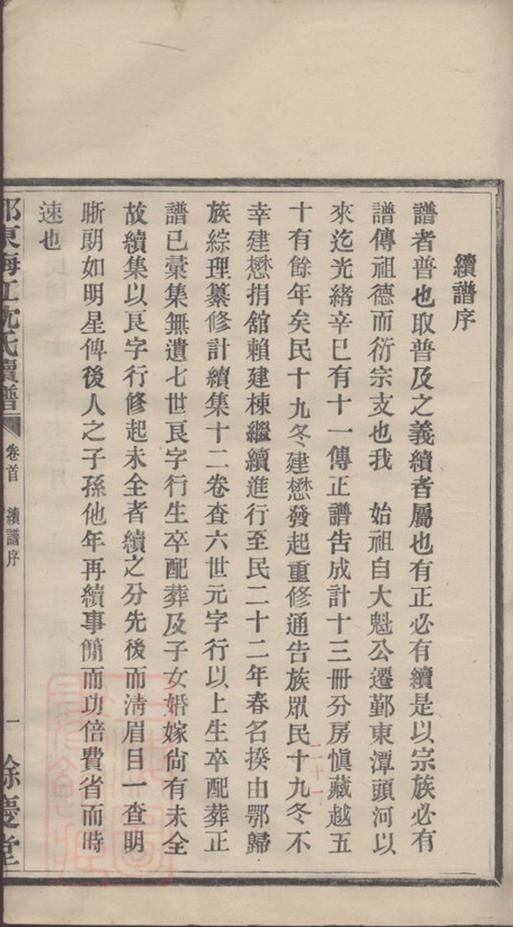 續譜序
譜者普也取普及之義續者屬也有正必有續是以宗族必有
譜傳祖德而衍宗支也我　始祖自大魁公遷鄞東潭頭河以
來迄光緒辛巳有十一傳正譜告成計十三冊分房慎藏越五
十有餘年矣民十九冬建懋發起重修通告族眾民十九冬不
幸建懋捐舘賴建棟繼續進行至民二十二年春名揆由鄂歸
族綜理纂修計續集十二卷查六世元字行以上生卒配葬正
譜已彙集無遺七世艮字行生卒配葬及子女婚嫁尙有未全
故續集以艮字行修起未全者續之分先後而淸眉目一查明
晰朗如明星俾後人之子孫他年再續事簡而功倍費省而時
速也
東 江沈氏續譜
卷首　續譜序
一
餘慶堂